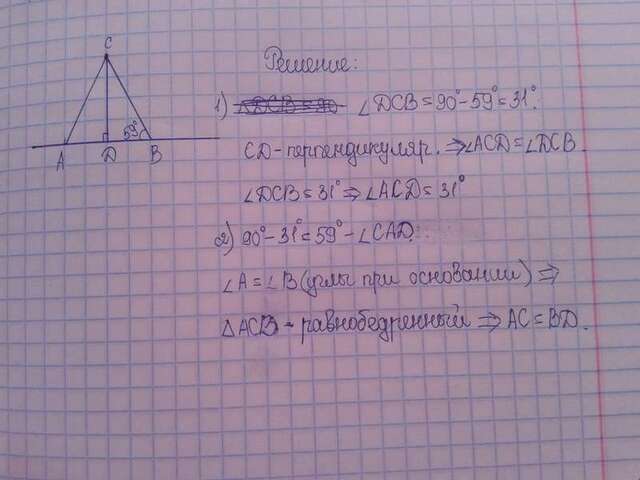 C
59°
A D B
Решение:
1) ∠DCB = 90°-59°=31°.
CD-перпендикуляр. ⇒ ∠ACD=∠DCB
∠DCB = 31° ⇒ ∠ACD = 31°
2) 90°-31°=59° - ∠CAD.
∠A = ∠B (углы при основании) ⇒
△ACB - равнобедренный ⇒ AC = BD.